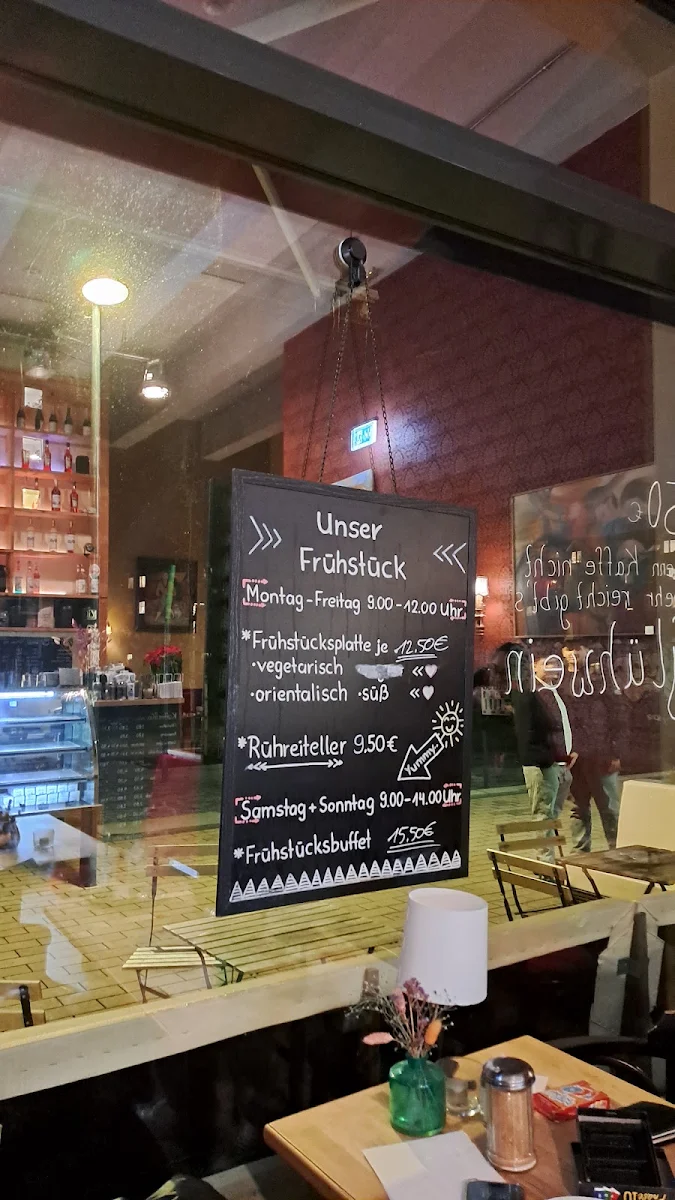 Unser
Frühstück
Montag-Freitag 9.00-12.00 Uhr
*Frühstücksplatte je 12.50€
·vegetarisch
·orientalisch ·süß
*Rühreiteller 9.50€
Yummy
Samstag+Sonntag 9.00-14.00 Uhr
*Frühstücksbuffet 15.50€
50€
enn Kaffe nicht
ehr reicht gibt's
Glühwein